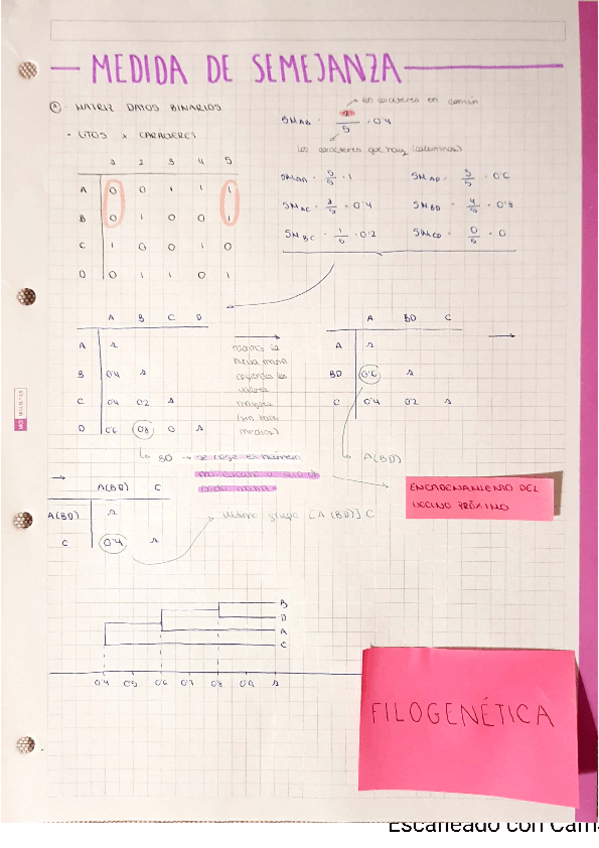 MEDIDA DE SEMEJANZA
A. MATRIZ DATOS BINARIOS
• UTOS x CARACTERES
1 2 3 4 5
A 0 0 1 1 1
B 0 1 0 0 1
C 1 0 0 1 0
D 0 1 1 0 1
los caracteres en común
SM AB = 2/5 = 0'4
los caracteres que hay (columnas)
SM AA = 5/5 = 1
SM AD = 3/5 = 0'6
SM AC = 2/5 = 0'4
SM BD = 4/5 = 0'8
SM BC = 1/5 = 0'2
SM CD = 0/5 = 0
A B C D
A 1
B 0'4 1
C 0'4 0'2 1
D 0'6 0'8 0 1
nueva matriz
cogiendo los
valores
mayores
(sin hacer
medias)
A BD C
A 1
BD 0'6 1
C 0'4 0'2 1
BD → se coge el número
A(BD)
ENCADENAMIENTO DEL
VECINO PRÓXIMO
A(BD) C
A(BD) 1
C 0'4 1
último grupo [A(BD)] C
B
D
A
C
0'4 0'5 0'6 0'7 0'8 0'9 1
FILOGENÉTICA
Escaneado con Cam